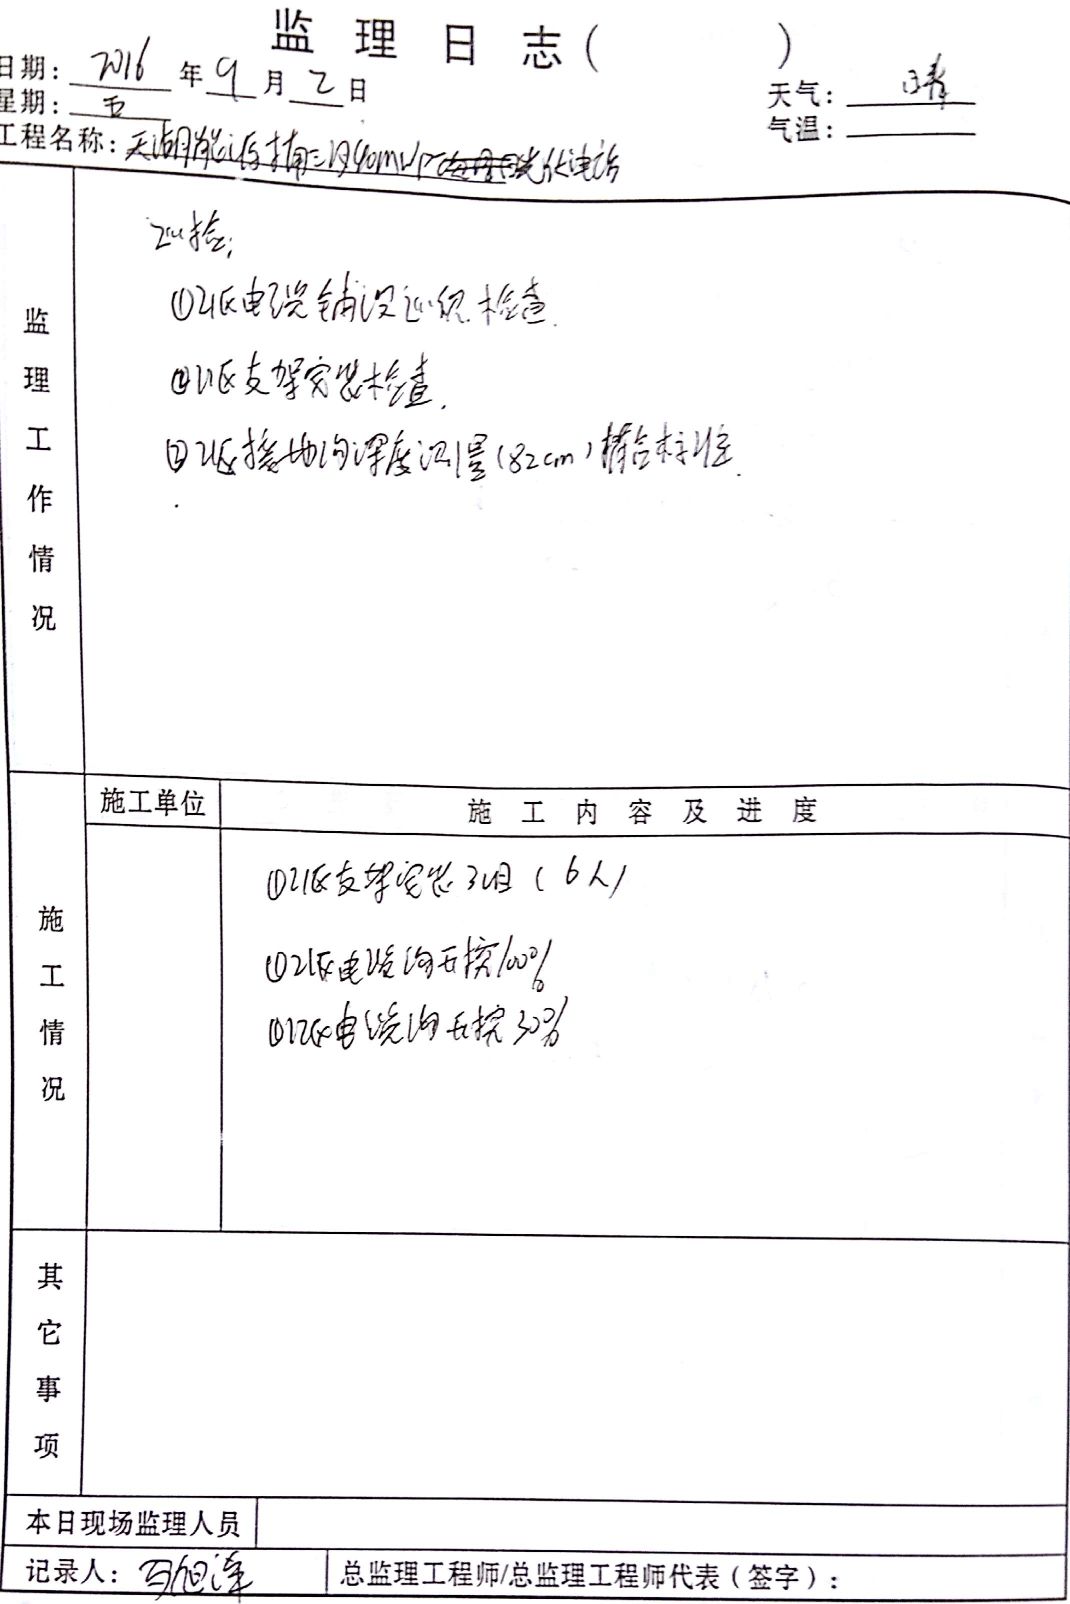 监理日志（ ）
日期：2016年9月2日
天气：晴
星期：五
气温：
工程名称：天湖 40MWp 光伏电站
监理工作情况
巡检：
①21区电缆铺设 检查.
②11区支架安装检查.
③21区接地沟深度测量（82cm）符合标准.
施工情况
施工单位 施工内容及进度
①21区支架安装3组（6人）
①21区电缆沟开挖100%
①12区电缆沟开挖30%
其它事项
本日现场监理人员
记录人：马旭泽 总监理工程师/总监理工程师代表（签字）：